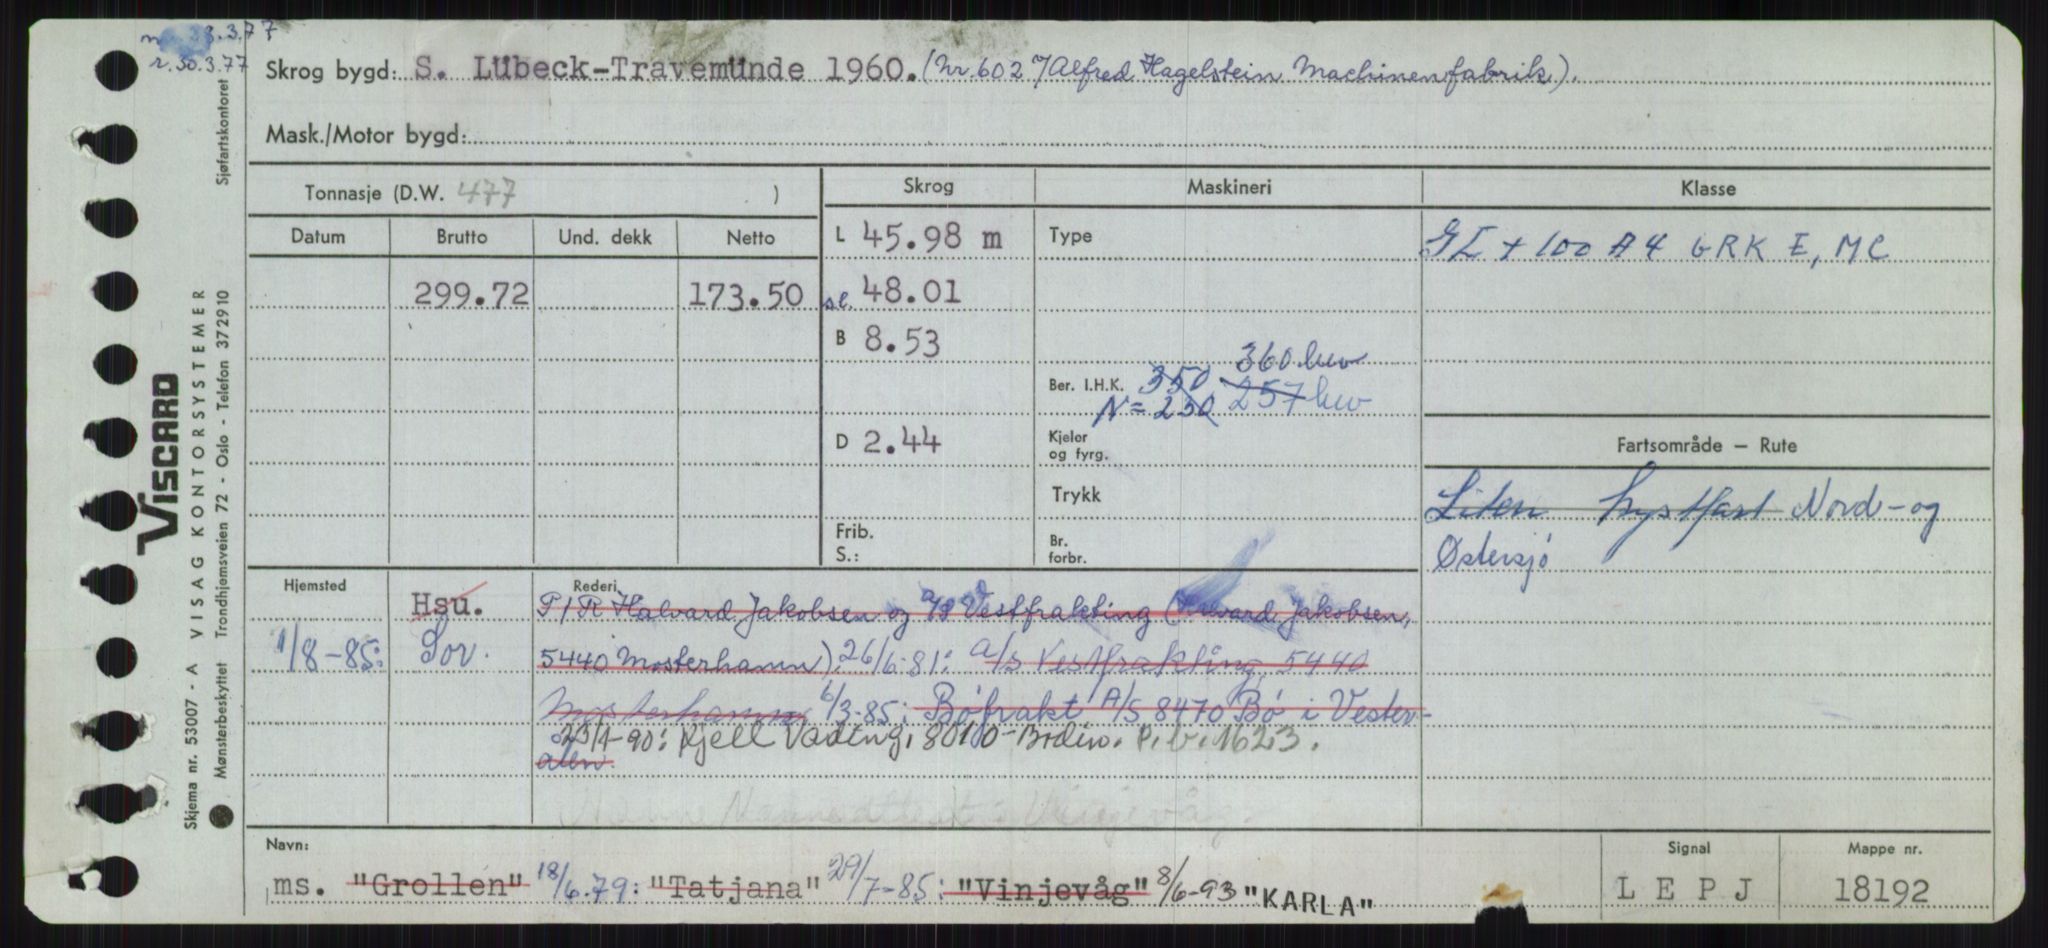 23.3.77
r. 30.3.77
Skrog bygd: S. Lübeck-Travemünde 1960. (Nr 602 %Alfred Hagelstein Machinenfabrik).
Mask./Motor bygd:
Tonnasje (D.W. 477 )
Skrog
Maskineri
Klasse
Datum Brutto Und. dekk Netto
L 45.98 m
Type
GL + 100 A4 GRK E, MC
299.72 173.50
sl. 48.01
B 8.53
360 hw
Ber. I.H.K. 350 257 hw
N = 250
D 2.44
Kjeler og fyrg.
Fartsområde – Rute
Trykk
Liten kystfart Nord- og
Østersjö
Frib.
S.:
Br. forbr.
Hjemsted
Rederi
Hsu.
P/R Halvard Jakobsen og A/S Vestfrakting (Halvard Jakobsen,
1/8-85: Sov.
5440 Mosterhamn). 26/6-81: A/S Vestfrakting, 5440
Mosterhamn 6/3-85: Bøfrakt A/S 8470 Bø i Vester-
23/1-90: Kjell Vading, 8010 Bodin. P.b. 1623.
ålen.
Navn:
ms. "Grollen" 18/6.79: "Tatjana" 29/7-85: "Vinjevåg" 8/6-93 "KARLA"
Signal
LEPJ
Mappe nr.
18192
Sjøfartskontoret
VISCARD
Skjema nr. 53007 - A VISAG KONTORSYSTEMER
Mønsterbeskyttet Trondhjemsveien 72 - Oslo - Telefon 372910